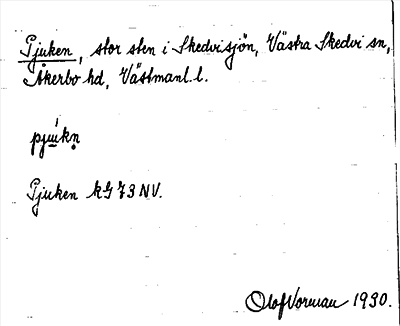 Pjuken, stor sten i Skedvisjön, Västra Skedvi sn,
Åkerbo hd, Västmanl. l.
pjɯ́kn̥
Pjuken kG 73 NV.
Olof Vorman 1930.